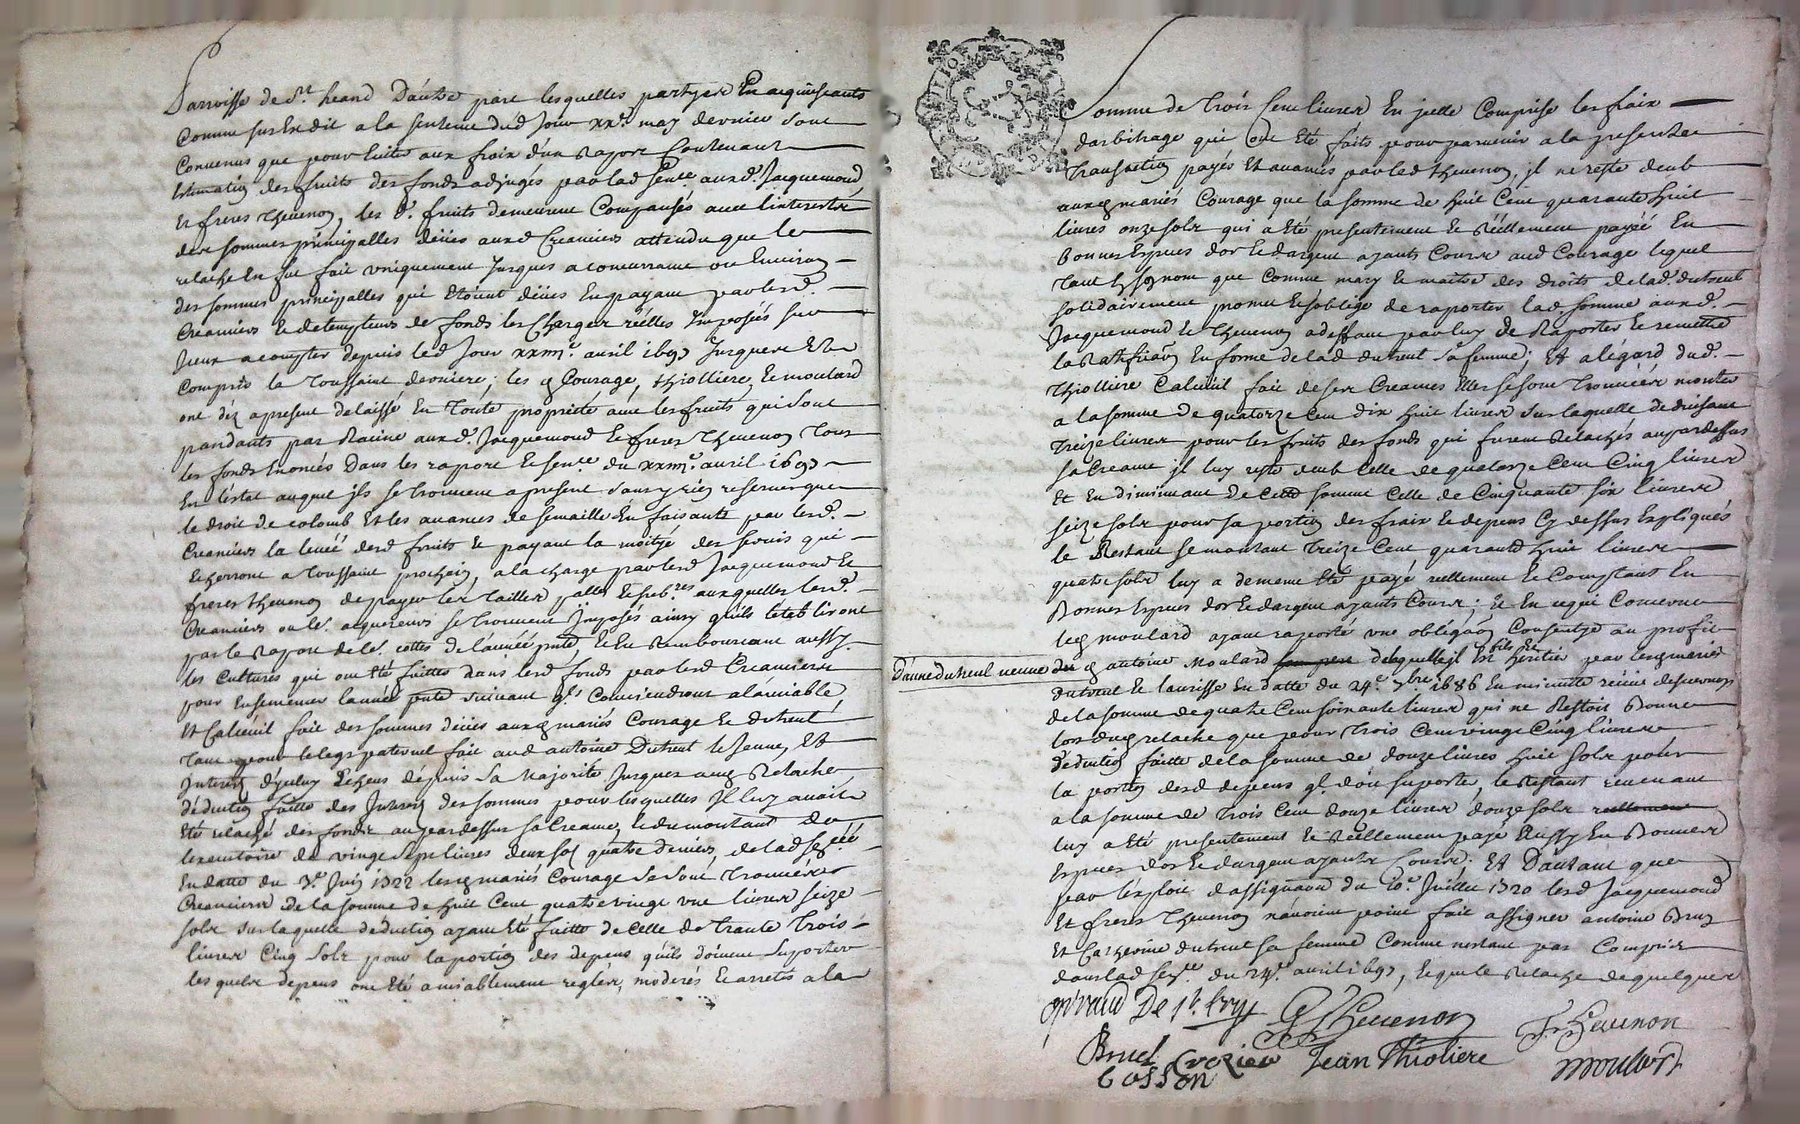 parroisse de St. heand D'autre part lesquelles partyes En acquiesçants
comme sus Est dit a la sentence dud Jour xxe. may dernier sont
Convenus que pour Eviter aux fraix d'un Raport Contenant
Estimation des fruits des fonds adjugés par lad Sence. aux d. Jacquemond
Et freres Thevenon, les d. fruits demeurent Compansés avec l'interests
des sommes principalles deües auxd Creanciers attendu que le
relache En fut fait uniquement Jusques a concurrance ou Environ
des sommes principalles qui Etoient deües En payant par lesd.
Creanciers & detempteurs de fonds les Charges réelles Imposés sur
Iceux a compter depuis led Jour xxiiiie. avril 1697 Jusques Et
Compris la Toussaint derniere; les q Courage, thiolliere, & moulard
ont déz a present delaissé En Toute proprieté avec les fruits qui sont
pandants par Racine aux d. Jacquemond & freres Thevenon Tous
les fonds Enoncés dans les raport & sence. du xxiiiie. avril 1697
En L'état auquel ils se trouvent a present sans y rien reserver que
le droit de colomb Et les avances de semaille En faisants par lesd.
Creanciers la levéé desd fruits & payant la moityé des servis qui
Echerront a Toussaint prochain, a la charge par lesd Jacquemond Et
freres thevenon de payer les Tailles auxquelles lesd.
Creanciers ou les. acquereurs se trouvent Imposés ainsy qu'ils letabliront
par le Rapou de les. cottes de l'annéé pnte, & En Remboursant aussy
les Cultures qui ont Eté faittes dans lesd fonds par lesd Creanciers
pour Ensemencer l'année pnte suivant qls Conviendront a l'amiable
Et Calcüil fait des sommes deües auxq mariés Courage & dutreul
Tant pour le legs paternel fait aud antoine Dutreul le Jeune, Et
Interets d'yceluy Echeus depuis sa majorité Jusques auq Relache
déduction faitte des Interets des sommes pour lesquelles Il luy avoit
Eté relaché des fonds au pardessus sa Creance, & du montant de
lexecutoire de vingt sept livres deux sol quatre deniers
En datte du 3e. Juin 1722 lesq mariés Courage se sont Trouvéés
Creanciers de la somme de huit Cent quatre vingt une livres seize
sols sur laquelle déduction ayant Eté faitte de celle de trante Trois
livres Cinq Sols pour la portion des depens qu'ils doivent suporter
lesquels depens ont Eté amiablement reglés, moderés & arretés a la
Somme de Trois Cent livres En icelle Comprise les fraix
d'arbitrage qui ont Eté faits pour parvenir a la presente
Transaction payés Et avancés par led Thevenon, jl ne reste deub
auxq mariés Courage que la somme de huit Cent quarante huit
livres onze sols qui a Eté presentement & Réellement payéé En
Bonnes Espèces d'or & d'argent ayants Cours aud Courage lequel
Tant En son nom que comme mary & maitre des droits de lad. dutreul
solidairement promet & s'oblige de raporter lad. somme aux d.
Jacquemond & Thevenon a deffaut par luy de Raporter & remettre
la Ratification En forme de lad dutreul sa femme; Et a légard dud.
Thiolliere Calcüil fait de ses Creances Elles se sont Trouvéés monter
a la somme de quatorze Cent dix huit livres sur laquelle deduisant
treize livres pour les fruits des fonds qui furent Relachés au pardessus
sa Creance jl luy reste deub Celle de quatorze Cent Cinq livres
Et En diminuant de Cette somme Celle de Cinquante six livres
seize sols pour sa portion des fraix & depens Cy dessus Expliqués
le Restant se montant Treize Cent quarante huit livres
quatre sols luy a de meme Eté payé réellement & Comptant En
Bonnes Espèces d'or & d'argent ayants Cours; & En ce qui Concerne
leq moulard ayant raporté une obligaôn Consentye au profit
D'anne dutreul veuve du q antoine Moulard de laquelle jl Est fils & heritier par lesq mariés
dutreul & laurisse En datte du 24e. 7bre. 1686
de la somme de quatre Cent soixante livres qui ne Restoit Bonne
lors duq relache que pour Trois Cent vingt Cinq livres
déduction faitte de la somme de douze livres huit Sols pour
la portion desd depens ql. doit suporter, le Restant revenant
a la somme de Trois Cent douze livres douze sols
luy a Eté presentement & Réellement payé Aussy En Bonnes
Espèces d'or & d'argent ayants Cours. Et D'autant que
par l'exploit d'assignaôn du 10e. Juillet 1720 lesd Jacquemond
Et freres Thevenon n'avoient point fait assigner antoine Brun
Et Catherine dutreul sa femme Comme n'estant pas Compris
dans lad sence. du 24e. avril 1697, & que le Relache de quelques
Thevenon
F. Thevenon
Bruel Crozier Jean Thioliere moulard
Cosson